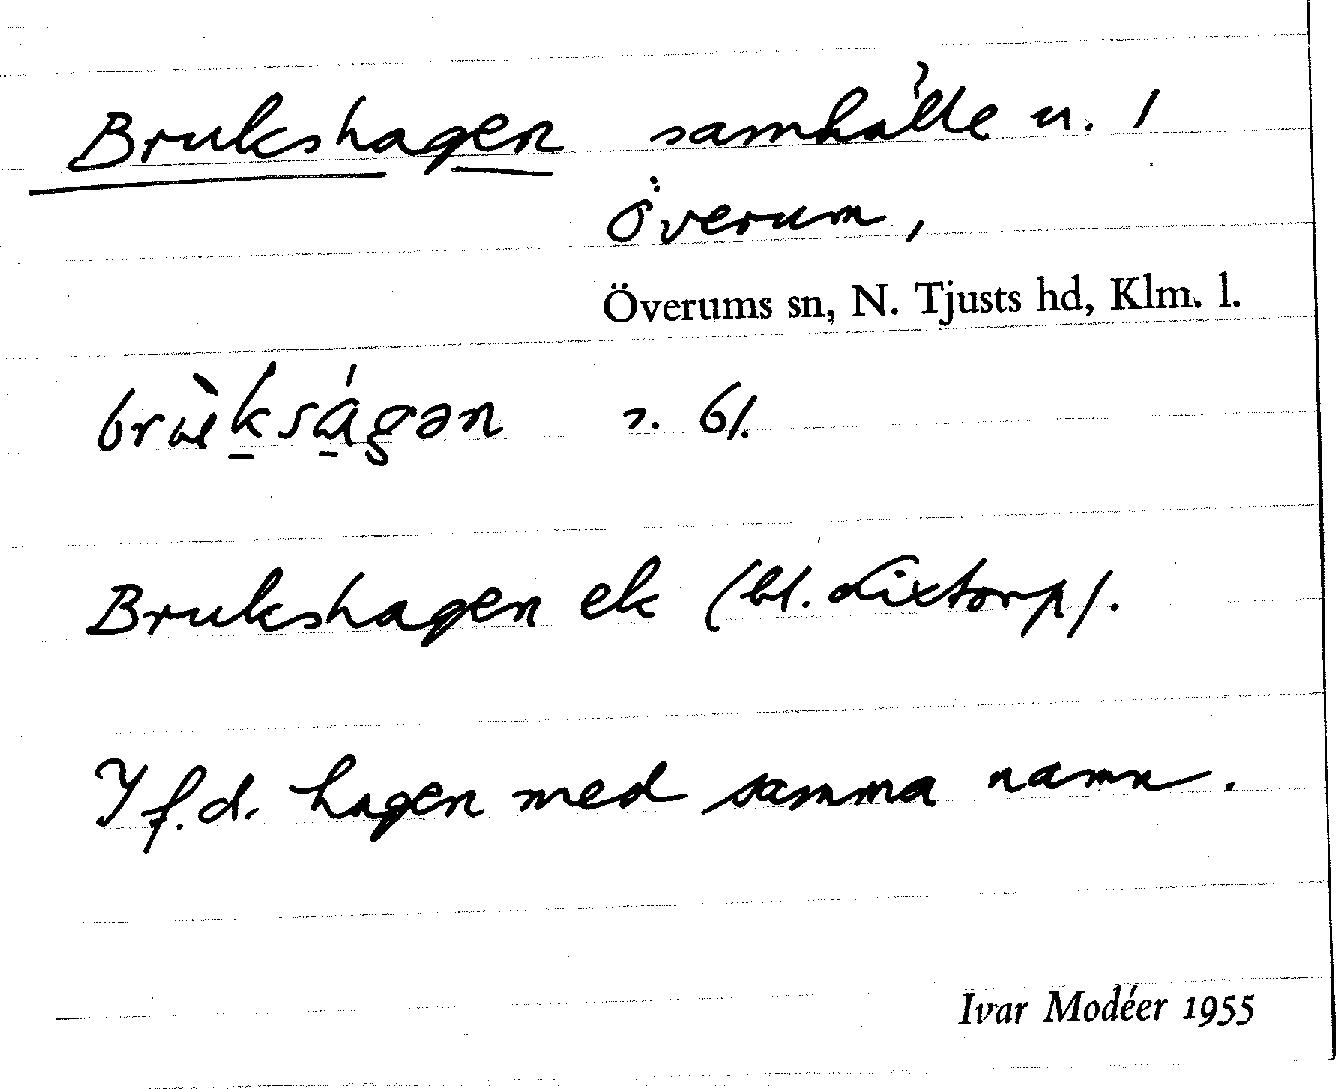 Brukshagen samhälle u. 1
Överum,
Överums sn, N. Tjusts hd, Klm. l.
Brukshagen ek (bl. Lixtorp).
I f.d. hagen med samma namn.
Ivar Modéer 1955